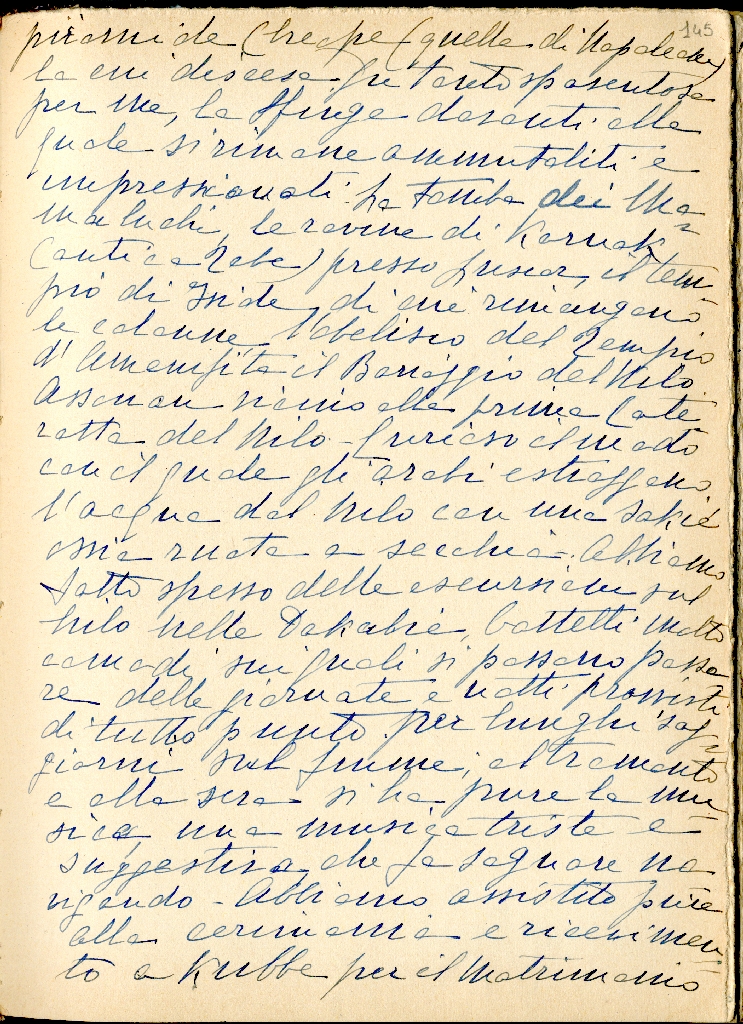 145
piramide Cheope (quella di Napoleone)
la cui discesa fu tanto spaventosa
per me, la Sfinge davanti alla
quale si rimane ammutoliti e
impressionati. La tomba dei Ma=
maluchi, le rovine di Karnak
(antica Tebe) presso Luxor, il tem=
pio di Iside, di cui rimangono
le colonne, l'obelisco del Tempio
d'Amenofita il Barraggio del Nilo
Assouan vicino alla prima Cate
ratta del Nilo - Curioso il modo
con il quale gli arabi estraggono
l'acqua dal Nilo con una Sakié
ossia ruota a secchia. Abbiamo
fatto spesso delle escursioni sul
Nilo nelle Dahabie, battelli molto
comodi sui quali si possono passa=
re delle giornate e notti provvisti
di tutto punto per lunghi sog=
giorni sul fiume, al tramonto
e alla sera si ha pure la mu=
sica, una musica triste e
suggestiva che fa sognare na
vigando - Abbiamo assistito pure
alla cerimonia e ricevimen=
to a Kubbe per il matrimonio